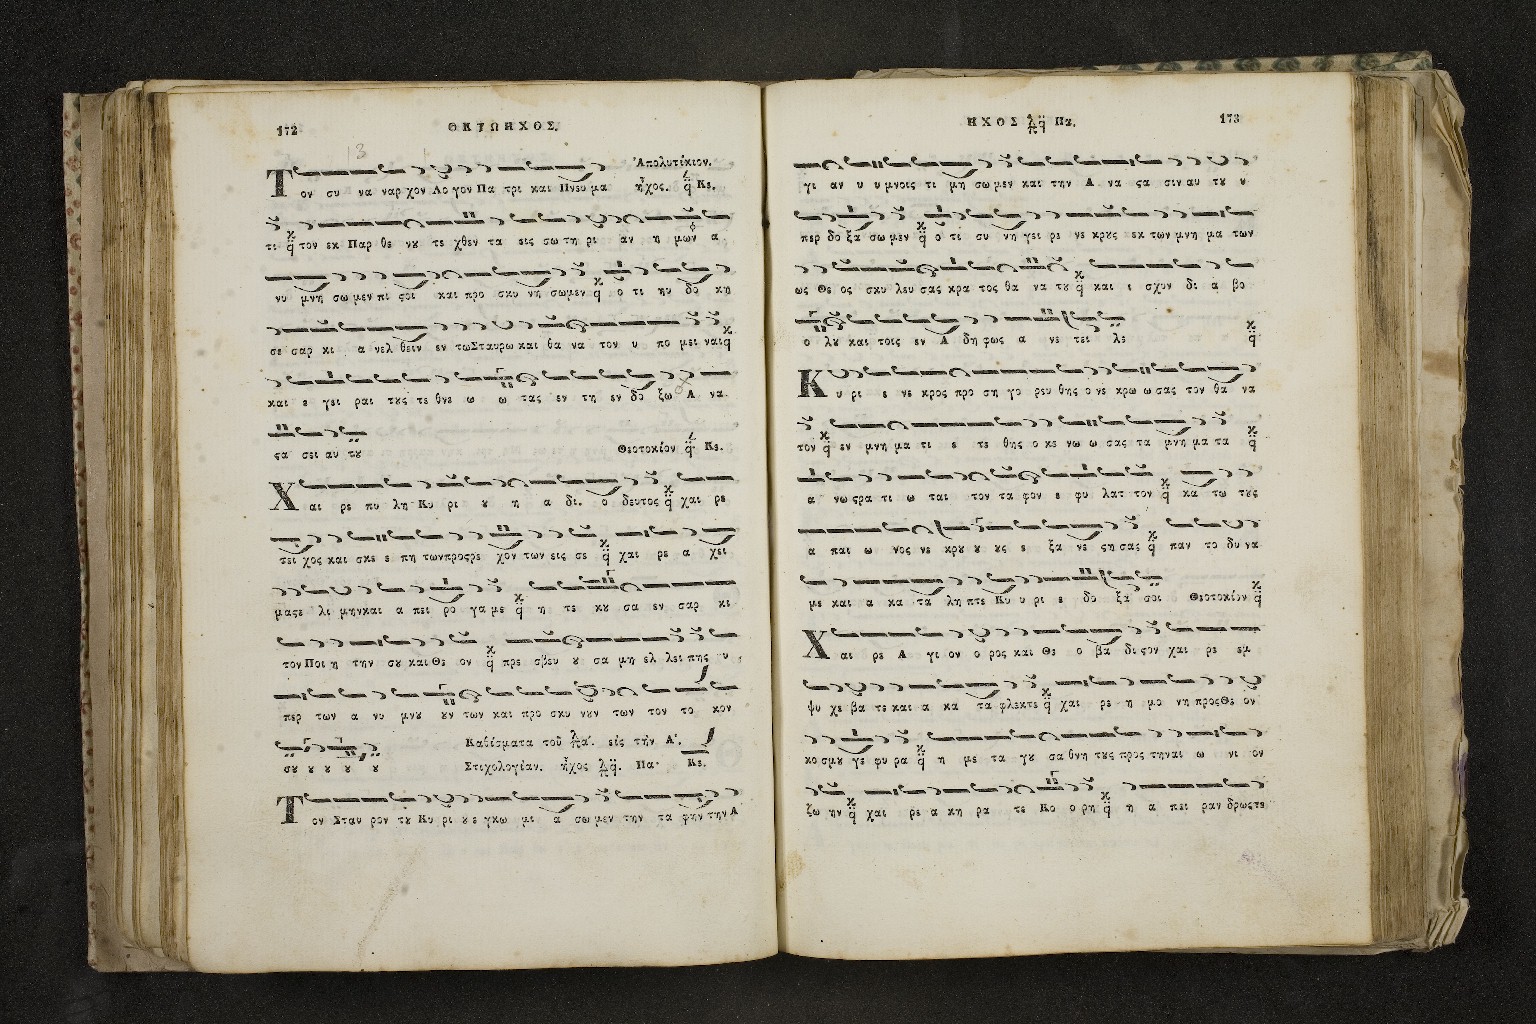 172 ΟΚΤΩΗΧΟΣ.
Ἀπολυτίκιον.
Τον συ να ναρ χον Λο γον Πα τρι και Πνευ μα ἦχος. Κε.
τι τον εκ Παρ θε νȣ τε χθεν τα εις σω τη ρι αν η μων α
νυ μνη σω μεν πι ϛοι και προ σκυ νη σωμεν ο τι ηυ δο κη
σε σαρ κι α νελ θειν εν τω Σταυρω και θα να τον υ πο μει ναι
και ε γει ραι τȣς τε θνε ω ω τας εν τη εν δο ξω Α να
ϛα σει αυ τȣ Θεοτοκίον Κε.
Χαι ρε πυ λη Κυ ρι ȣ η α δι. ο δευτος χαι ρε
τει χος και σκε ε πη των προςρε χον των εις σε χαι ρε α χει
μαϛε λι μην και α πει ρο γα με η τε κȣ σα εν σαρ κι
τον Ποι η την σȣ και Θε ον πρε σβευ ȣ σα μη ελ λει πης υ
περ των α νυ μνȣ ȣν των και προ σκυ νȣν των τον το κον
Καθίσματα τοῦ εἰς τὴν Α΄.
σȣ ȣ ȣ ȣ ȣ Στιχολογίαν. ἦχος Πα· Κε.
Τον Σταυ ρον τȣ Κυ ρι ȣ ε γκω μι α σω μεν την τα φην την Α
ΗΧΟΣ Πα. 173
γι αν υ υ μνοις τι μη σω μεν και την Α να ϛα σιν αυ τȣ ȣ
περ δο ξα σω μεν ο τι συ νη γει ρε νε κρȣς εκ των μνη μα των
ως Θε ος σκυ λευ σας κρα τος θα να τȣ και ι σχυν δι α βο
ο λȣ και τοις εν Α δη φως α νε τει λε
Κυ ρι ε νε κρος προ ση γο ρευ θης ο νε κρω ω σας τον θα να
τον εν μνη μα τι ε τε θης ο κε νω ω σας τα μνη μα τα
α νω ϛρα τι ω ται τον τα φον ε φυ λατ τον κα τω τȣς
α παι ω νος νε κρȣ ȣ ȣς ε ξα νε ϛη σας παν το δυ να
με και α κα τα λη πτε Κυ υ ρι ε δο ξα σοι Θεοτοκίον
Χαι ρε Α γι ον ο ρος και Θε ο βα δι ϛον χαι ρε εμ
ψυ χε βα τε και α κα τα φλεκτε χαι ρε η μο νη προς Θε ον
κο σμȣ γε φυ ρα η με τα γȣ σα θνη τȣς προς την αι ω νι ον
ζω ην χαι ρε α κη ρα τε Κο ο ρη η α πει ραν δρως τε